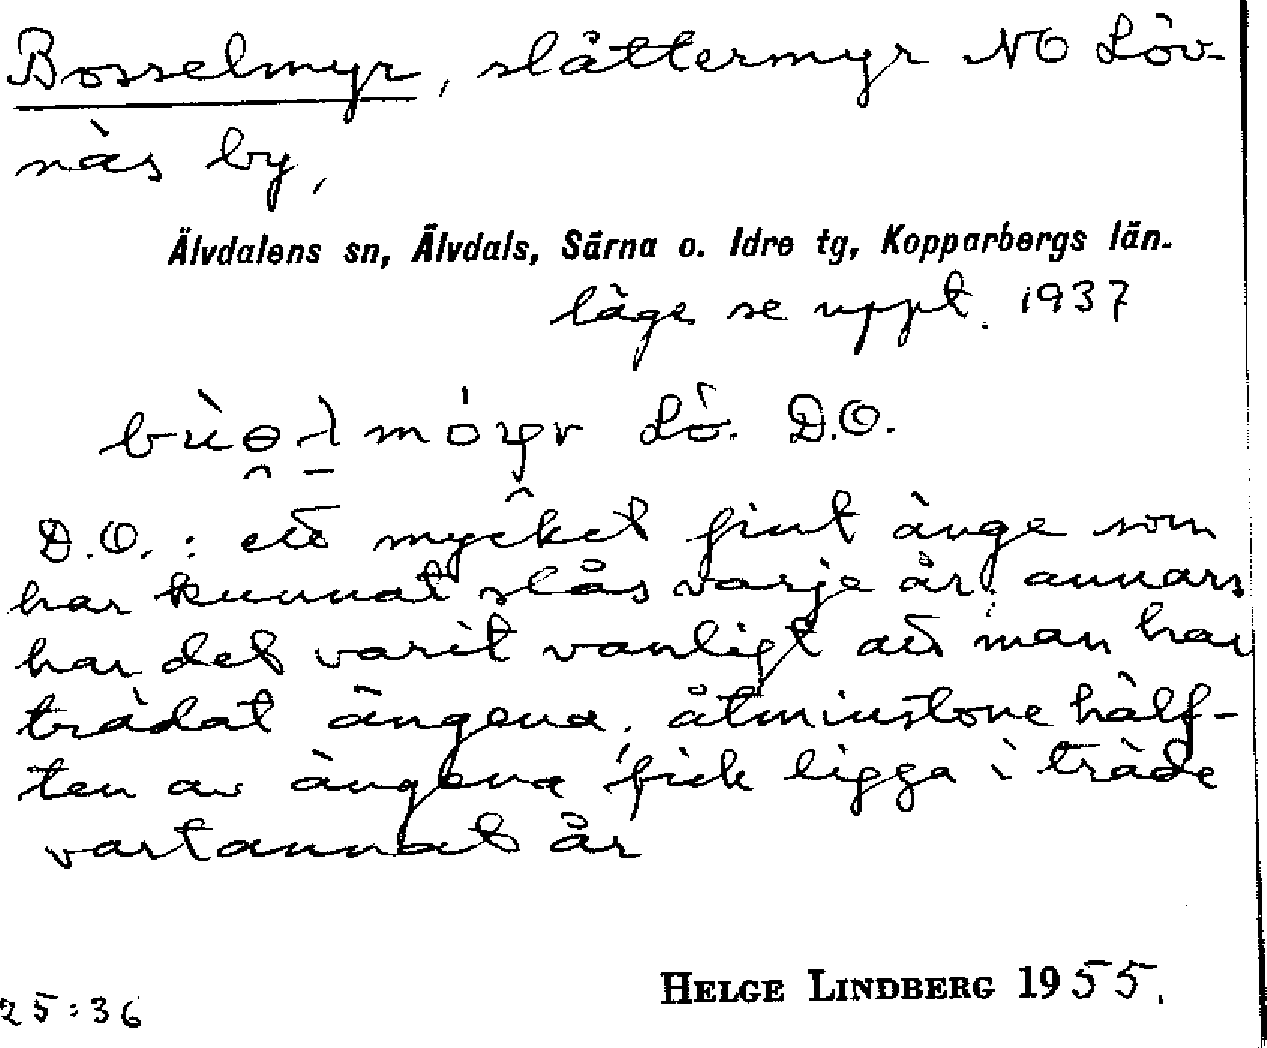 Bosselmyr, slåttermyr NO Löv-
näs by,
Älvdalens sn, Älvdals, Särna o. Idre tg, Kopparbergs län.
läge se uppt. 1937
Lö. D.O.
D.O.: ett mycket fint änge som
har kunnat slås varje år; annars
har det varit vanligt att man har
trädat ängena, åtminstone hälf-
ten av ängena fick ligga i träde
vartannat år
HELGE LINDBERG 1955.
25:36